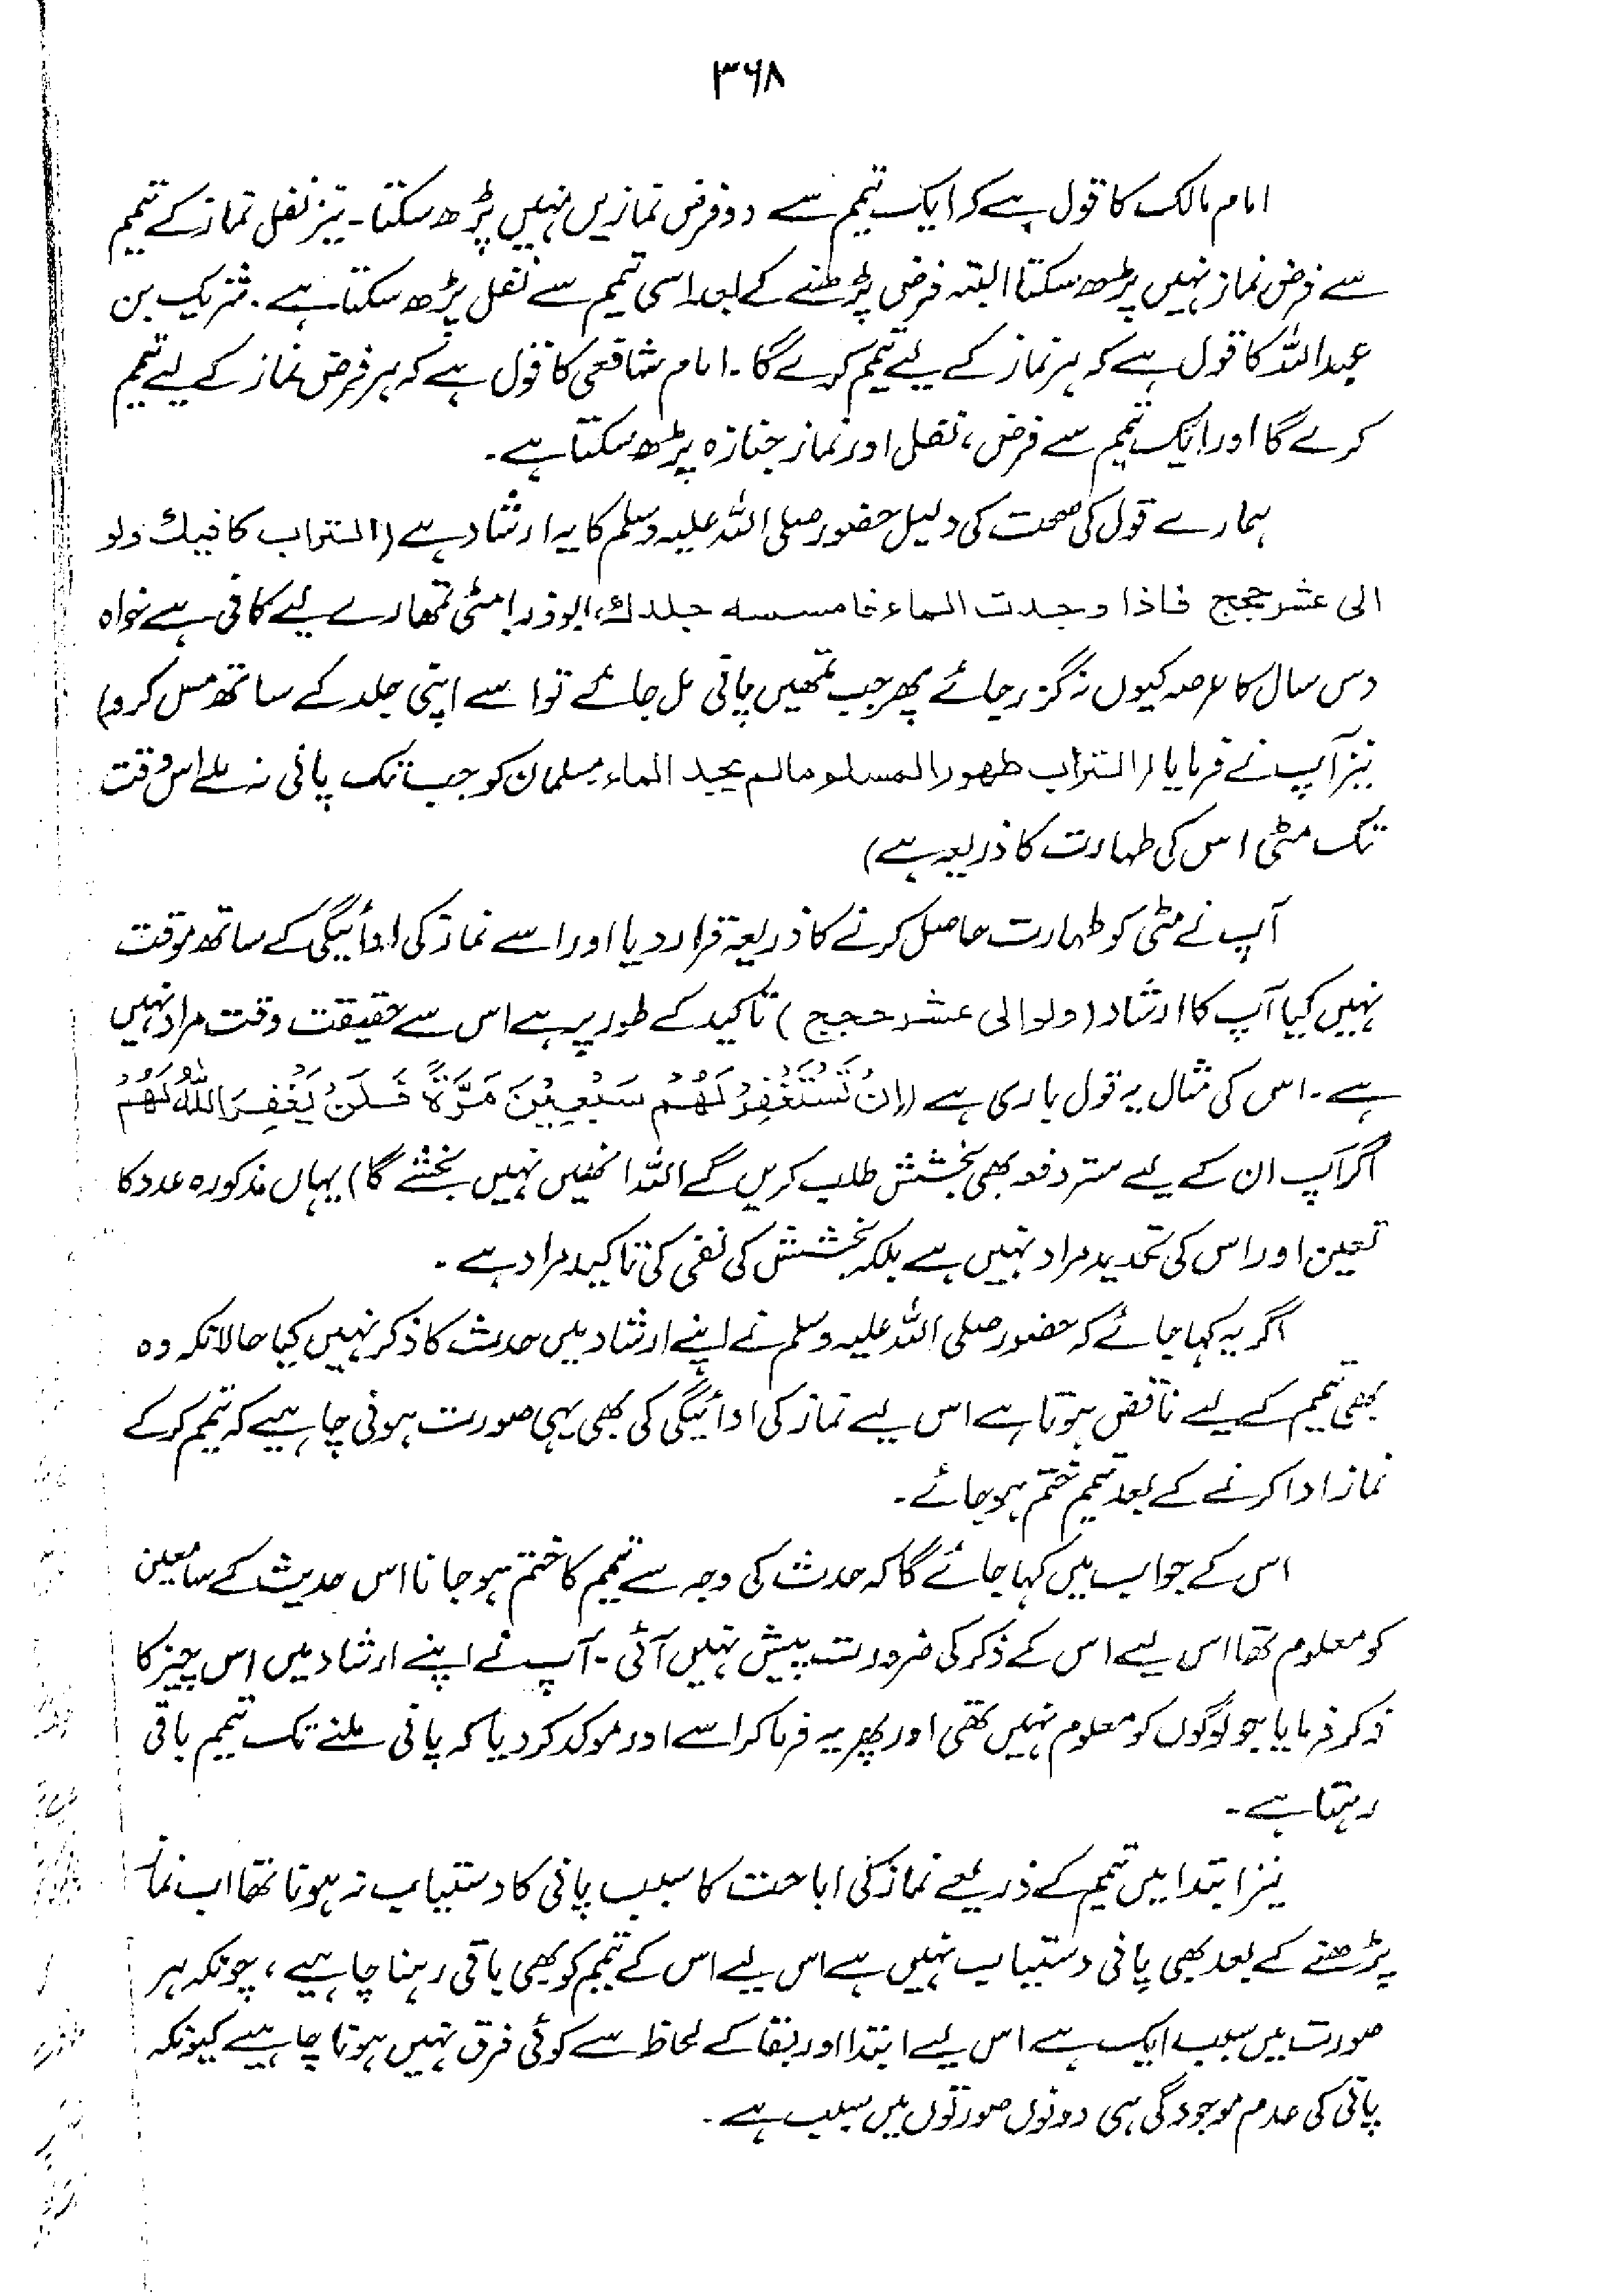 ۳۶۸
امام مالک کا قول ہے کہ ایک تیمم سے دو فرض نمازیں نہیں پڑھ سکتا۔ نیز نفل نماز کے تیمم
سے فرض نماز نہیں پڑھ سکتا البتہ فرض پڑھنے کے بعد اسی تیمم سے نفل پڑھ سکتا ہے۔ شریک بن
عبداللہ کا قول ہے کہ ہر نماز کے لیے تیمم کرے گا۔ امام شافعی کا قول ہے کہ ہر فرض نماز کے لیے تیمم
کرے گا اور ایک تیمم سے فرض، نفل اور نماز جنازہ پڑھ سکتا ہے۔
ہمارے قول کی صحت کی دلیل حضور صلی اللہ علیہ وسلم کا یہ ارشاد ہے (التراب کافیك ولو
الی عشر حجج فاذا وجدت الماء فامسسه جلدك، ابوذر! مٹی تمھارے لیے کافی ہے خواہ
دس سال کا عرصہ کیوں نہ گزر جائے پھر جب تمھیں پانی مل جائے تو اسے اپنی جلد کے ساتھ مس کرو)
نیز آپ نے فرمایا (التراب طهور المسلم مالم یجد الماء مسلمان کو جب تک پانی نہ ملے اس وقت
تک مٹی اس کی طہارت کا ذریعہ ہے)
آپ نے مٹی کو طہارت حاصل کرنے کا ذریعہ قرار دیا اور اسے نماز کی ادائیگی کے ساتھ موقت
نہیں کیا آپ کا ارشاد (ولو الی عشر حجج) تاکید کے طور پر ہے اس سے حقیقت وقت مراد نہیں
ہے۔ اس کی مثال یہ قول باری ہے (اِنْ تَسْتَغْفِرْ لَهُمْ سَبْعِيْنَ مَرَّةً فَلَنْ يَغْفِرَ اللّٰهُ لَهُمْ
اگر آپ ان کے لیے ستر دفعہ بھی بخشش طلب کریں گے اللہ انھیں نہیں بخشے گا) یہاں مذکورہ عدد کا
تعین اور اس کی تحدید مراد نہیں ہے بلکہ بخشش کی نفی کی تاکید مراد ہے۔
اگر یہ کہا جائے کہ حضور صلی اللہ علیہ وسلم نے اپنے ارشاد میں حدث کا ذکر نہیں کیا حالانکہ وہ
بھی تیمم کے لیے ناقض ہوتا ہے اس لیے نماز کی ادائیگی کی بھی یہی صورت ہونی چاہیے کہ تیمم کرکے
نماز ادا کرنے کے بعد تیمم ختم ہو جائے۔
اس کے جواب میں کہا جائے گا کہ حدث کی وجہ سے تیمم کا ختم ہو جانا اس حدیث کے سامعین
کو معلوم تھا اس لیے اس کے ذکر کی ضرورت پیش نہیں آئی۔ آپ نے اپنے ارشاد میں اس چیز کا
ذکر فرمایا جو لوگوں کو معلوم نہیں تھی اور پھر یہ فرما کر اسے اور موکد کر دیا کہ پانی ملنے تک تیمم باقی
رہتا ہے۔
نیز ابتدا میں تیمم کے ذریعے نماز کی اباحت کا سبب پانی کا دستیاب نہ ہونا تھا اب نماز
پڑھنے کے بعد بھی پانی دستیاب نہیں ہے اس لیے اس کے تیمم کو بھی باقی رہنا چاہیے، چونکہ ہر
صورت میں سبب ایک ہے اس لیے ابتدا اور بقا کے لحاظ سے کوئی فرق نہیں ہونا چاہیے کیونکہ
پانی کی عدم موجودگی ہی دونوں صورتوں میں سبب ہے۔